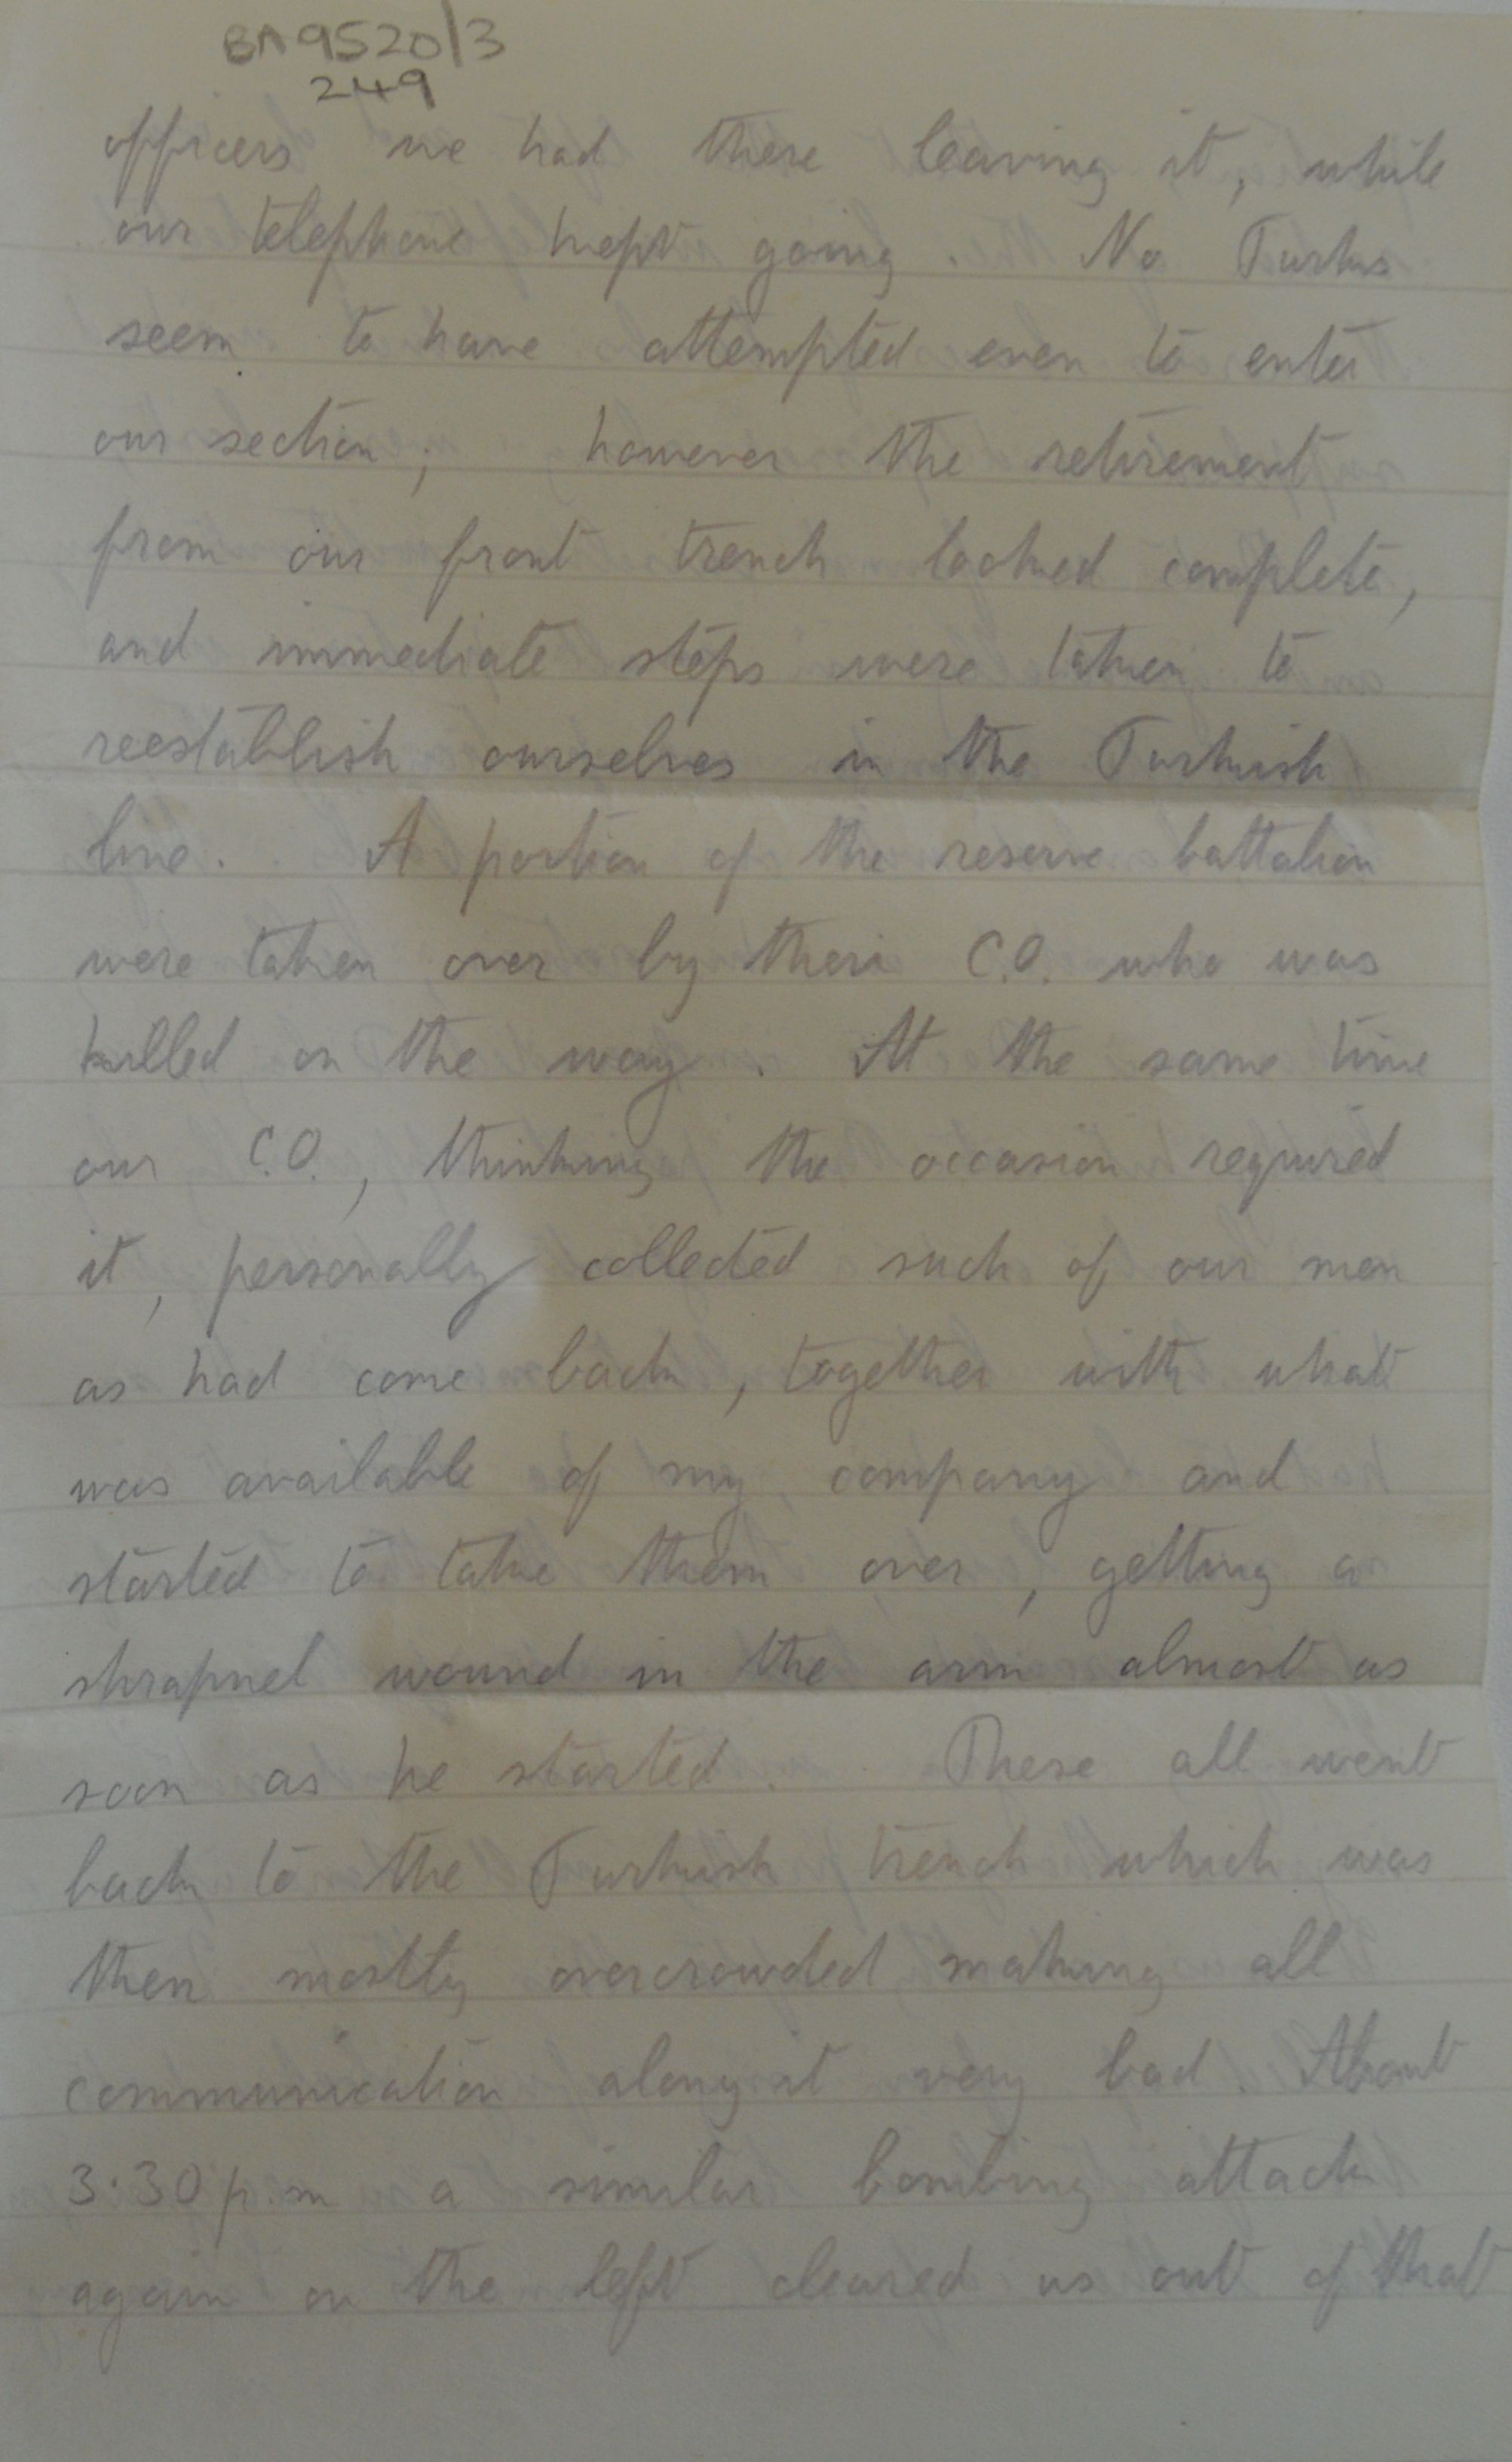 BA9520/3
249
officers we had there leaving it, while
our telephone kept going. No Turks
seem to have attempted even to enter
our section; however the retirement
from our front trench looked complete,
and immediate steps were taken to
reestablish ourselves in the Turkish
line. A portion of the reserve battalion
were taken over by their C.O. who was
killed on the way. At the same time
our C.O., thinking the occasion required
it, personally collected such of our men
as had come back, together with what
was available of my company and
started to take them over, getting a
shrapnel wound in the arm almost as
soon as he started. These all went
back to the Turkish trench which was
then mostly overcrowded making all
communication along it very bad. About
3.30 p.m a similar bombing attack
again on the left cleared us out of that